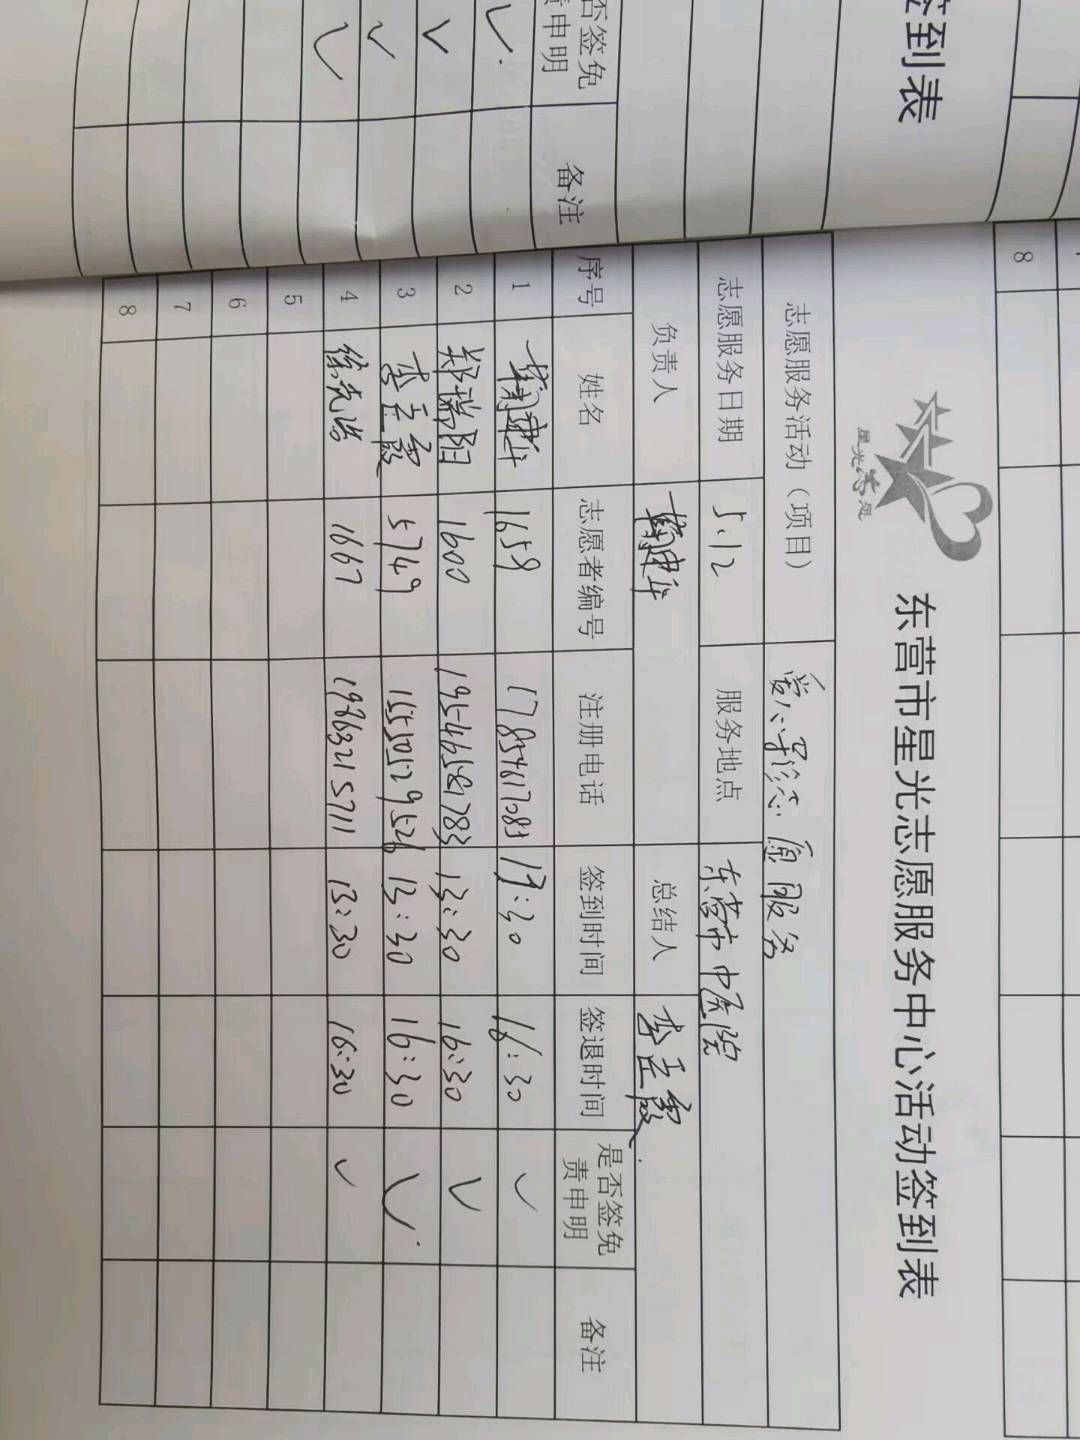 签到表
是否签免责申明
备注
8
星光志愿
东营市星光志愿服务中心活动签到表
志愿服务活动（项目） 爱心导诊志愿服务
志愿服务日期 5.12 服务地点 东营市中医院
负责人 总结人 李立霞
序号 姓名 志愿者编号 注册电话 签到时间 签退时间 是否签免责申明 备注
1 1659 17854617085 13:30 16:30 ✓
2 郑瑞阳 1600 19546581783 13:30 16:30 ✓
3 李立霞 5749 15550529526 13:30 16:30 ✓
4 徐先浩 1667 19863215711 13:30 16:30 ✓
5
6
7
8